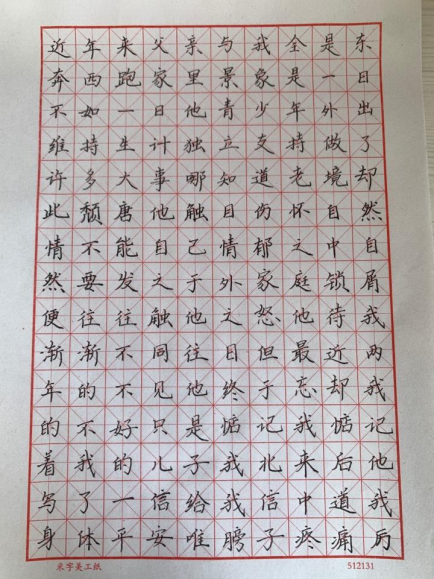 近年来父亲与我全是东
奔西跑家里景象是一日
不如一日他青少年外出
维持生计独立支持做了
许多大事哪知道老境却
此颓唐他触目伤怀自然
情不能自己情郁之中自
然要发之于外家庭锁屑
便往往触他之怒他待我
渐渐不同往日但最近两
年的不见他终于忘却我
的不好只是惦记我惦记
着我的儿子我北来后他
写了一信给我信中道我
身体平安唯膀子疼痛厉
米字美工纸 512131